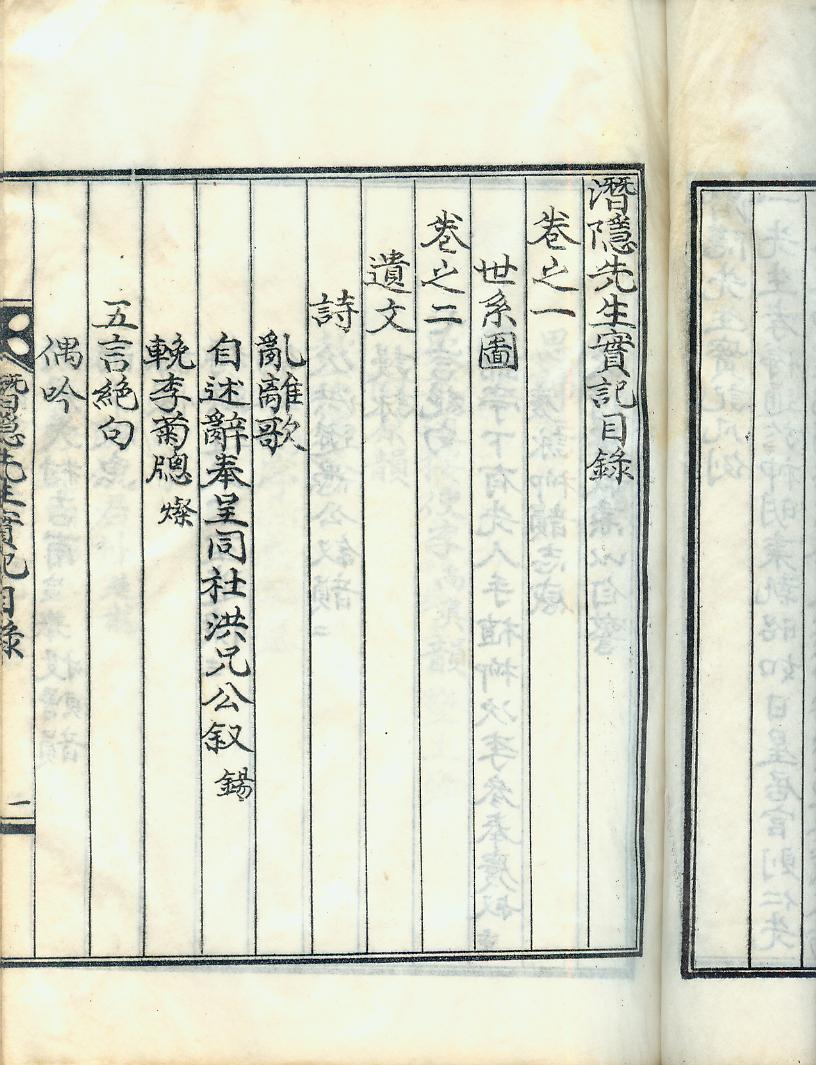 潛隱先生實記目錄
卷之一
世系圖
卷之二
遺文
詩
亂離歌
自述辭奉呈同社洪兄公叙 錫
輓李菊牕 燦
五言絶句
偶吟
潛隱先生實記目錄 一